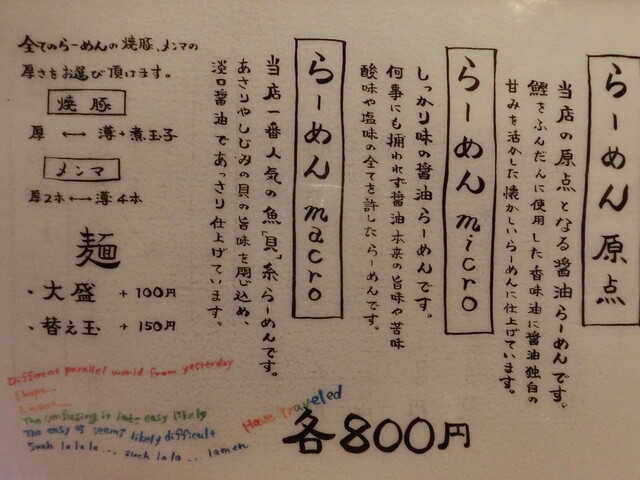 らーめん原点
当店の原点となる醤油らーめんです。
鰹をふんだんに使用した香味油に醤油独自の
甘みを活かした懐かしいらーめんに仕上げています。
らーめん micro
しっかり味の醤油らーめんです。
何事にも捕われず醤油本来の旨味や苦味
酸味や塩味の全てを許したらーめんです。
らーめん macro
当店一番人気の魚「貝」系らーめんです。
あさりやしじみの貝の旨味を閉じ込め、
淡口醤油であっさり仕上げています。
全てのらーめんの焼豚、メンマの
厚さをお選び頂けます。
焼豚
厚 ←→ 薄+煮玉子
メンマ
厚2本←→薄4本
麺
・大盛 +100円
・替え玉 +150円
各800円
Different parallel world from yesterday
I hope...
I want...
The confusing it looks easy likely
The easy it seems likely difficult
Such lalala... such lala... lamen
Have Traveled